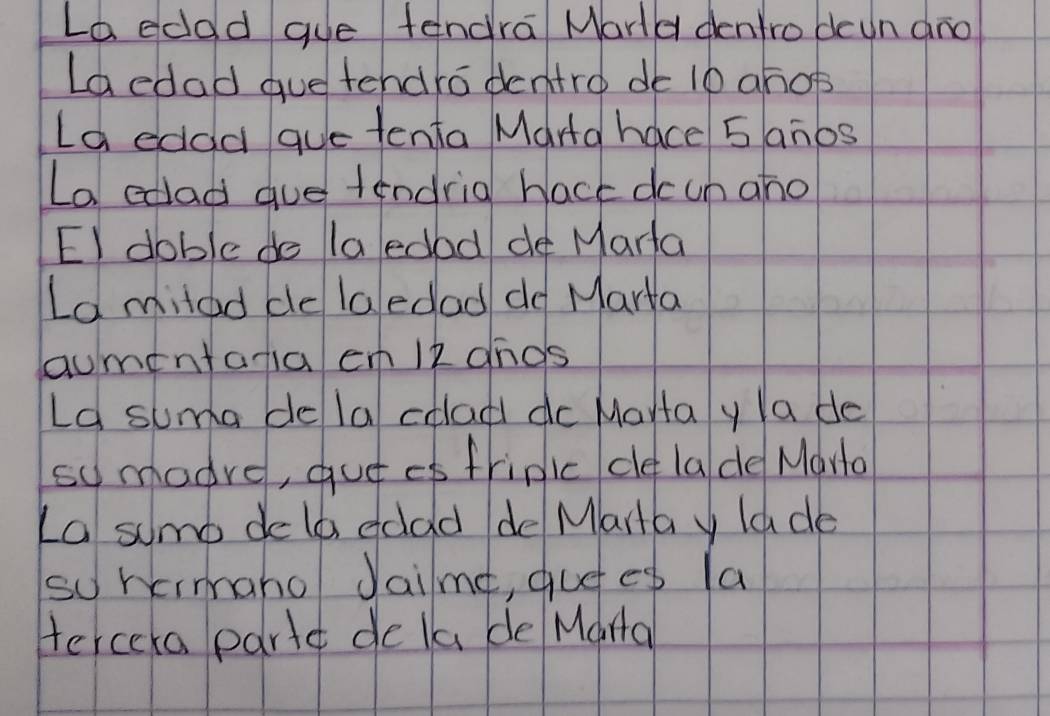 La edad que tendrá Marta dentro de un año
La edad que tendrá dentro de 10 años
La edad que tenia Marta hace 5 años
La edad que tendria hace de un año
El doble de la edad de Marta
La mitad de la edad de Marta
aumentaria en 12 años
La suma de la edad de Marta y la de
su madre, que es triple de la de Marta
La suma de la edad de Marta y la de
su hermano Jaime, que es la
tercera parte de la de Marta